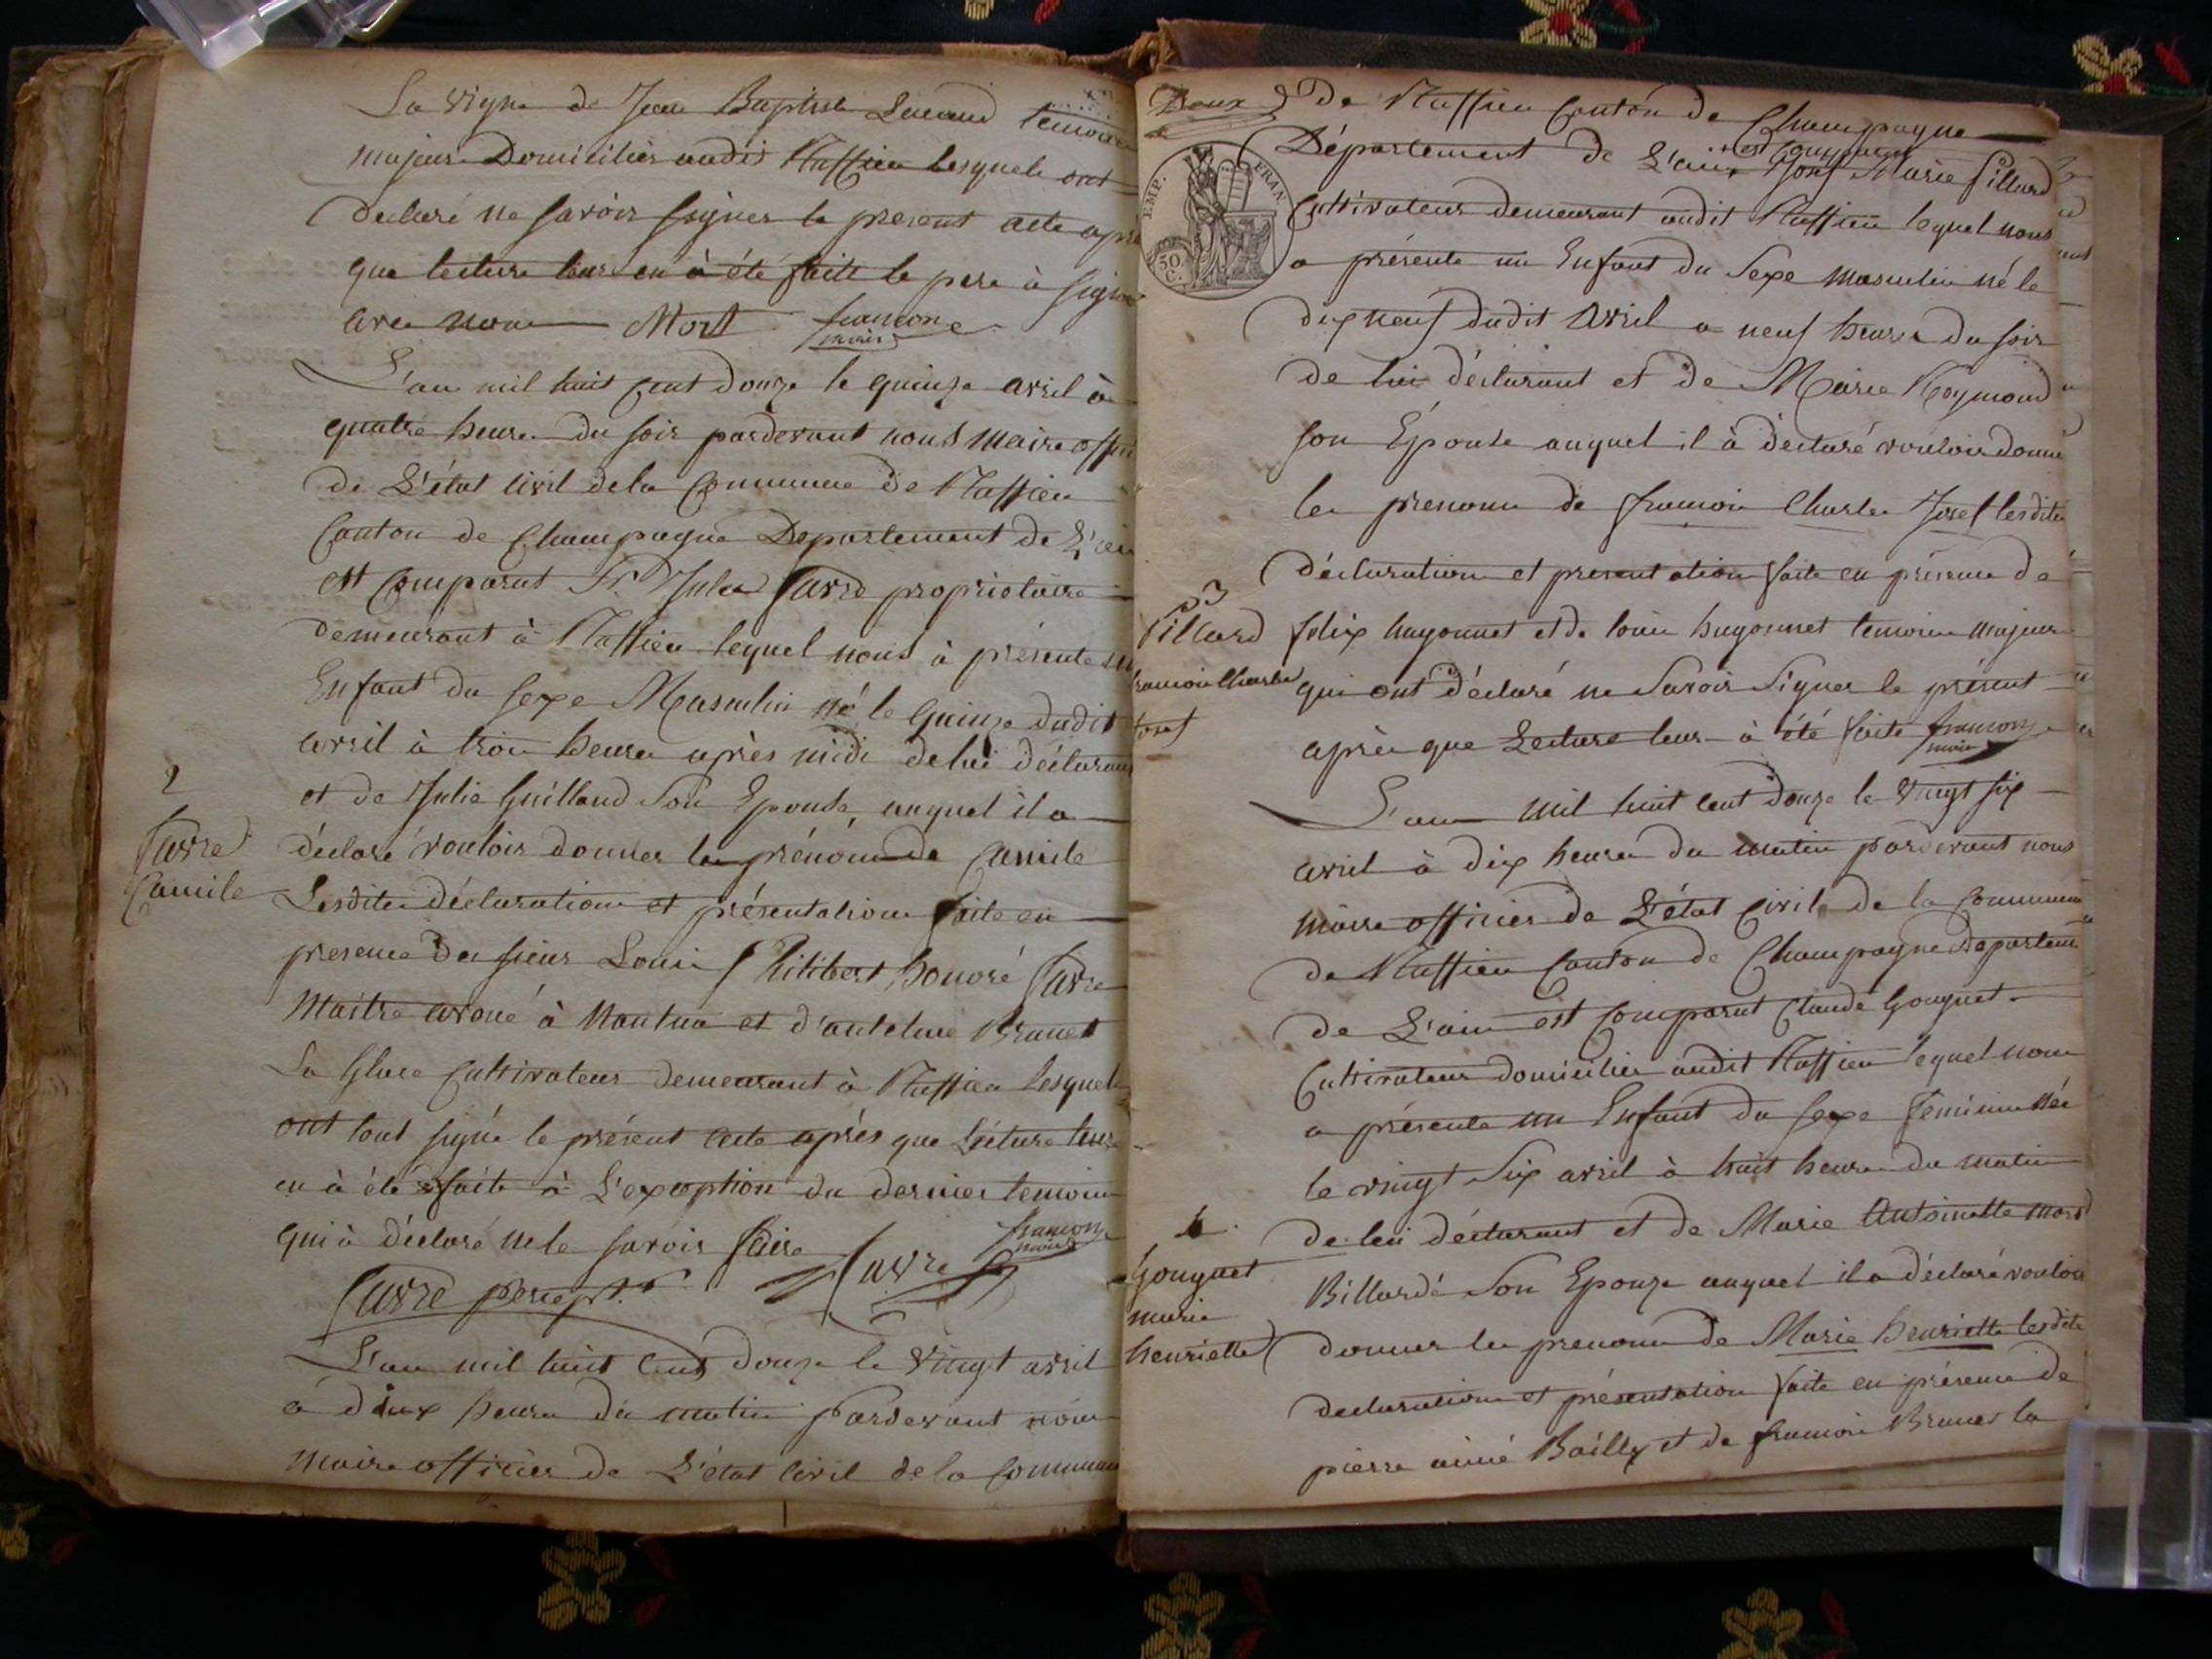 La vigne de Jean Baptiste temoins
majeurs Domiciliés audit Ruffieu lesquels ont
declaré ne savoir signer le present acte apr
que lecture leur en à été faite le pere à signé
avec nous Mort françon
maire
L'an mil huit Cent douze le quinze avril à
quatre heures du soir pardevant nous Maire offici
de L'état Civil dela Commune de Ruffieu
Canton de Champagne Departement de L'ain
est Comparut Sr. Jules Carre proprietaire
demeurant à Ruffieu lequel nous à présenté un
Enfant du sexe Masculin né le quinze dudit
avril à trois heures après midi delui déclarant
2
et de Julie Guilland Son Epouse, auquel il a
Carre
déclaré vouloir donner les prénoms de Camile
Camile
Lesdites déclaration et présentation faite en
presence des sieurs Louis Philibert honoré Carre
Maitre avoué à Nantua et d'anteleme Brunet
La Glace Cultivateur demeurant à Ruffieu lesquels
ont tout signé le présent acte après que lecture leur
en à été faite à L'exception du dernier temoin
qui à déclaré ne le savoir faire
Carre percept.r Carre françon
maire
L'an mil huit Cent douze le Vingt avril
à dix heures du matin Pardevant nous
Maire officier de L'état Civil de la Commune
Deux
de Ruffieu Canton de Champagne
Département de L'ain est Comparut Josef Marie Pillard
EMP. FRAN.
50 C.
Cultivateur demeurant audit Ruffieu lequel nous
a présenté un Enfant du Sexe masculin né le
dix neuf dudit Avril a neuf heures du soir
de lui déclarant et de Marie Reymond
son Épouse auquel il à déclaré vouloir donné
les prenoms de françois Charles Josef lesdites
déclaration et presentation faite en présence de
53
Pillard
felix hugonnet et de louis hugonnet temoins majeurs
françois Charles
qui ont déclaré ne Savoir Signer le présent
Josef
après que Lecture leur à été faite françon
maire
L'an mil huit cent douze le Vingt six
avril à dix heures du matin pardevant nous
maire officier de L'état Civile de la Commune
de Ruffieu Canton de Champagne Departem
de L'ain est Comparut Claude Gouynet
Cultivateur domicilié audit Ruffieu lequel nous
a présenté un Enfant du Sexe feminin née
le vingt Six avril à huit heures du matin
4
de lui déclarant et de Marie Antoinette mort
Gouynet
Billardé Son Epouze auquel il a déclaré vouloir
marie
henriette
donner les prenoms de Marie henriette lesdite
declaration et présentation faite en présence de
pierre aimé Bailly et de françois Brunet la